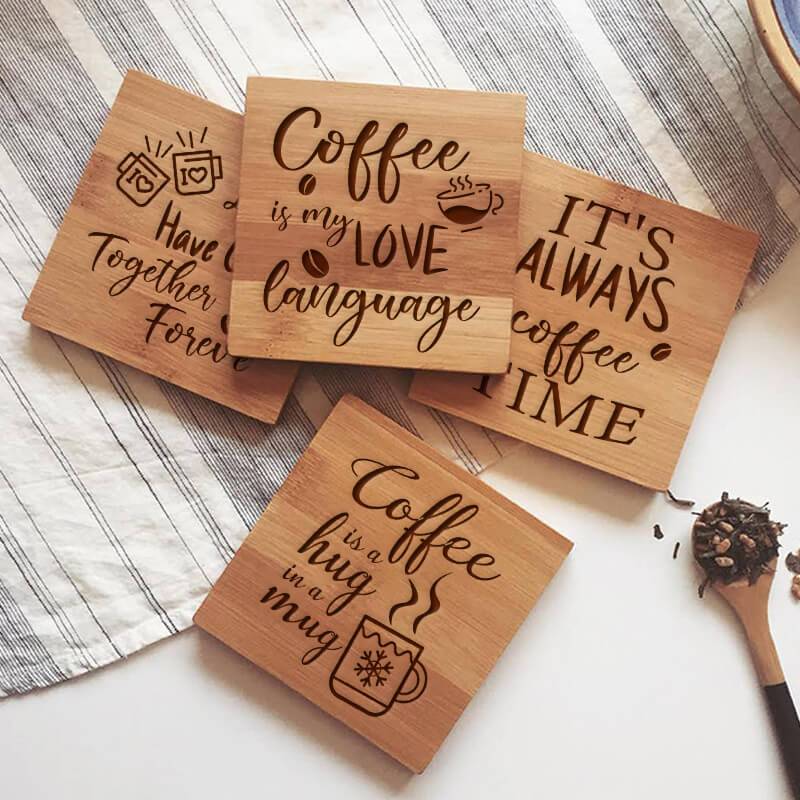 I♡
I♡
Have
Together
Forever
Coffee
is my
LOVE
language
IT'S
ALWAYS
coffee
TIME
Coffee
is a
hug
in a
mug